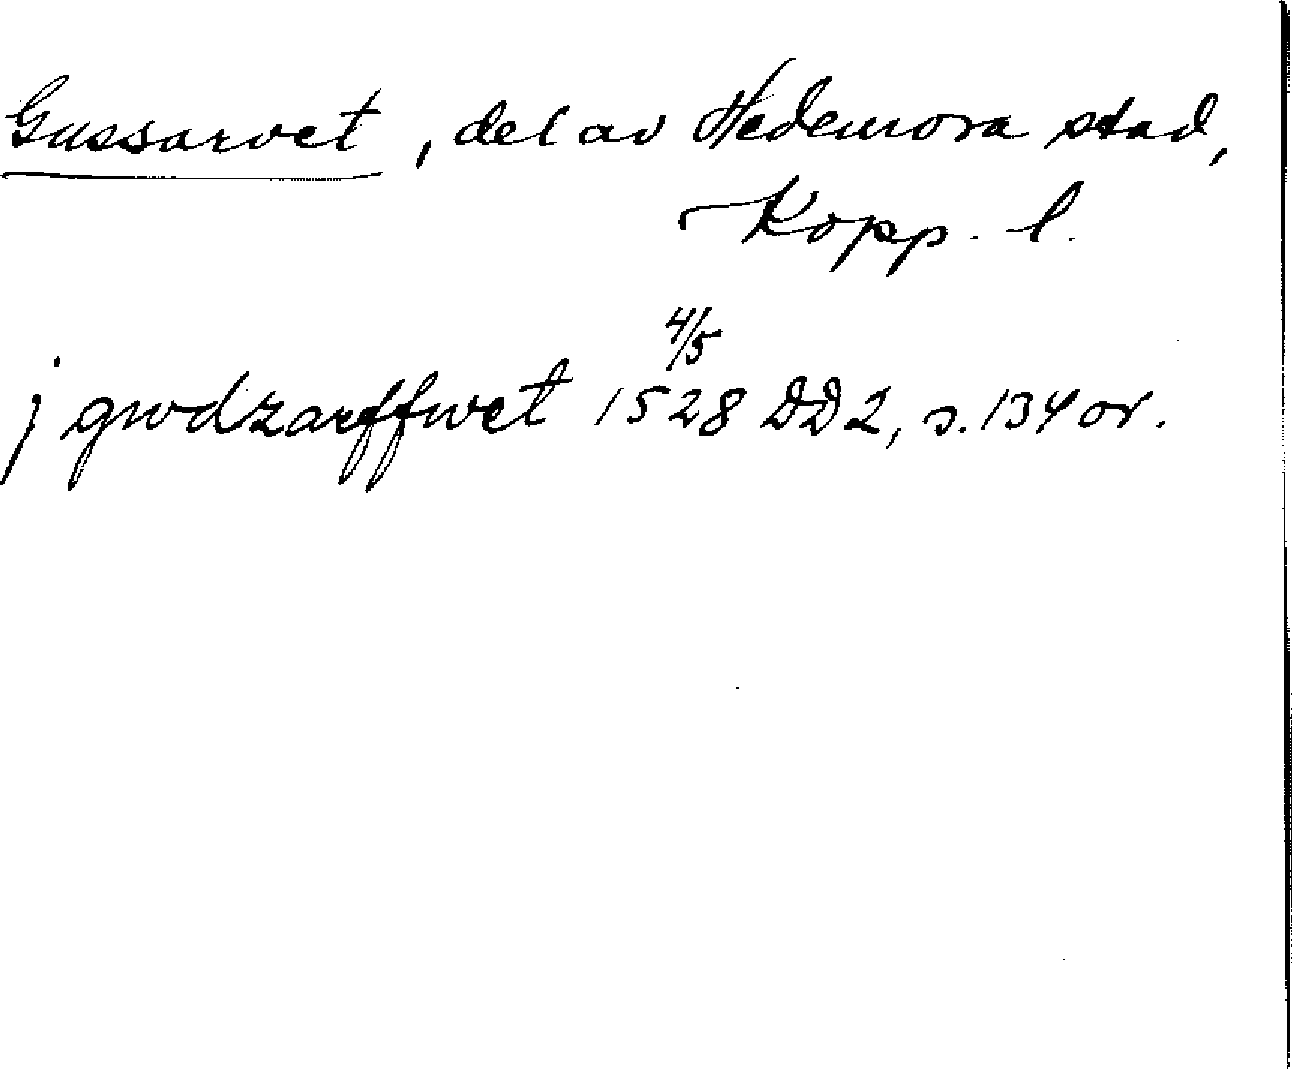 Gussarvet, del av Hedemora stad,
Kopp. l.
j gwdzarffwet 1528 4/5 DD2, s. 134 or.